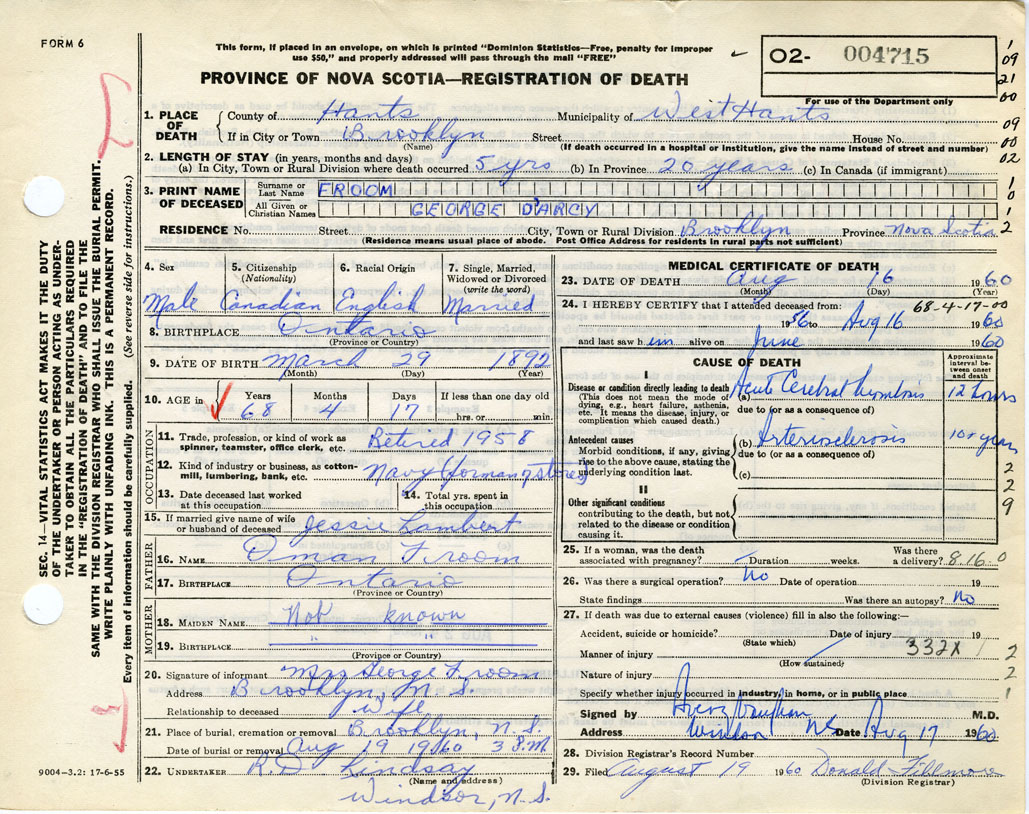 FORM 6
This form, if placed in an envelope, on which is printed "Dominion Statistics—Free, penalty for improper
use $50," and properly addressed will pass through the mail "FREE"
O2- 004715
For use of the Department only
PROVINCE OF NOVA SCOTIA—REGISTRATION OF DEATH
1. PLACE OF DEATH
County of Hants Municipality of West Hants
If in City or Town Brooklyn Street House No.
(Name) (If death occurred in a hospital or institution, give the name instead of street and number)
2. LENGTH OF STAY (in years, months and days)
(a) In City, Town or Rural Division where death occurred 5 yrs (b) In Province 20 years (c) In Canada (if immigrant)
3. PRINT NAME OF DECEASED
Surname or Last Name FROOM
All Given or Christian Names GEORGE D'ARCY
RESIDENCE No. Street City, Town or Rural Division Brooklyn Province Nova Scotia
(Residence means usual place of abode. Post Office Address for residents in rural parts not sufficient)
1
09
21
00
09
00
02
1
0
1
2
4. Sex
Male
5. Citizenship (Nationality)
Canadian
6. Racial Origin
English
7. Single, Married, Widowed or Divorced (write the word)
Married
8. BIRTHPLACE Ontario
(Province or Country)
9. DATE OF BIRTH March 29 1892
(Month) (Day) (Year)
10. AGE in
Years Months Days If less than one day old
68 4 17 hrs. or min.
OCCUPATION
11. Trade, profession, or kind of work as spinner, teamster, office clerk, etc. Retired 1958
12. Kind of industry or business, as cotton-mill, lumbering, bank, etc. Navy (forman stores
13. Date deceased last worked at this occupation
14. Total yrs. spent in this occupation
15. If married give name of wife or husband of deceased Jessie Lambert
FATHER
16. NAME Oman Froom
17. BIRTHPLACE Ontario
(Province or Country)
MOTHER
18. MAIDEN NAME Not known
19. BIRTHPLACE " "
(Province or Country)
20. Signature of informant Mrs George Froom
Address Brooklyn, N.S.
Relationship to deceased Wife
21. Place of burial, cremation or removal Brooklyn, N.S.
Date of burial or removal Aug 19 1960 3 P.M.
22. UNDERTAKER R.D. Lindsay
(Name and address)
Windsor, N.S.
9004-3.2: 17-6-55
MEDICAL CERTIFICATE OF DEATH
23. DATE OF DEATH Aug 16 1960
(Month) (Day) (Year)
24. I HEREBY CERTIFY that I attended deceased from: 68-4-17-00
1956 to Aug 16 1960
and last saw him alive on June 1960
CAUSE OF DEATH
Approximate interval between onset and death
I
Disease or condition directly leading to death
(This does not mean the mode of dying, e.g., heart failure, asthenia, etc. It means the disease, injury, or complication which caused death.)
(a) Acute Cerebral thrombosis 12 hours
due to (or as a consequence of)
Antecedent causes
Morbid conditions, if any, giving rise to the above cause, stating the underlying condition last.
(b) Arteriosclerosis 10+ years
due to (or as a consequence of)
(c)
II
Other significant conditions
contributing to the death, but not related to the disease or condition causing it.
2
2
9
25. If a woman, was the death associated with pregnancy? Duration weeks. Was there a delivery? 8.16.0
26. Was there a surgical operation? No Date of operation 19
State findings Was there an autopsy? No
27. If death was due to external causes (violence) fill in also the following:—
Accident, suicide or homicide? Date of injury 19
(State which) 332X 1
Manner of injury 2
(How sustained)
Nature of injury 2
Specify whether injury occurred in industry, in home, or in public place 1
Signed by M.D.
Address Windsor NS Date Aug 17 1960
28. Division Registrar's Record Number
29. Filed August 19 1960 Donald Fillmore
(Division Registrar)
SEC. 14.—VITAL STATISTICS ACT MAKES IT THE DUTY
OF THE UNDERTAKER OR PERSON ACTING AS UNDER-
TAKER TO OBTAIN ALL THE PARTICULARS REQUIRED
IN THE "REGISTRATION OF DEATH" AND TO FILE THE
SAME WITH THE DIVISION REGISTRAR WHO SHALL ISSUE THE BURIAL PERMIT.
WRITE PLAINLY WITH UNFADING INK. THIS IS A PERMANENT RECORD.
Every item of information should be carefully supplied. (See reverse side for instructions.)